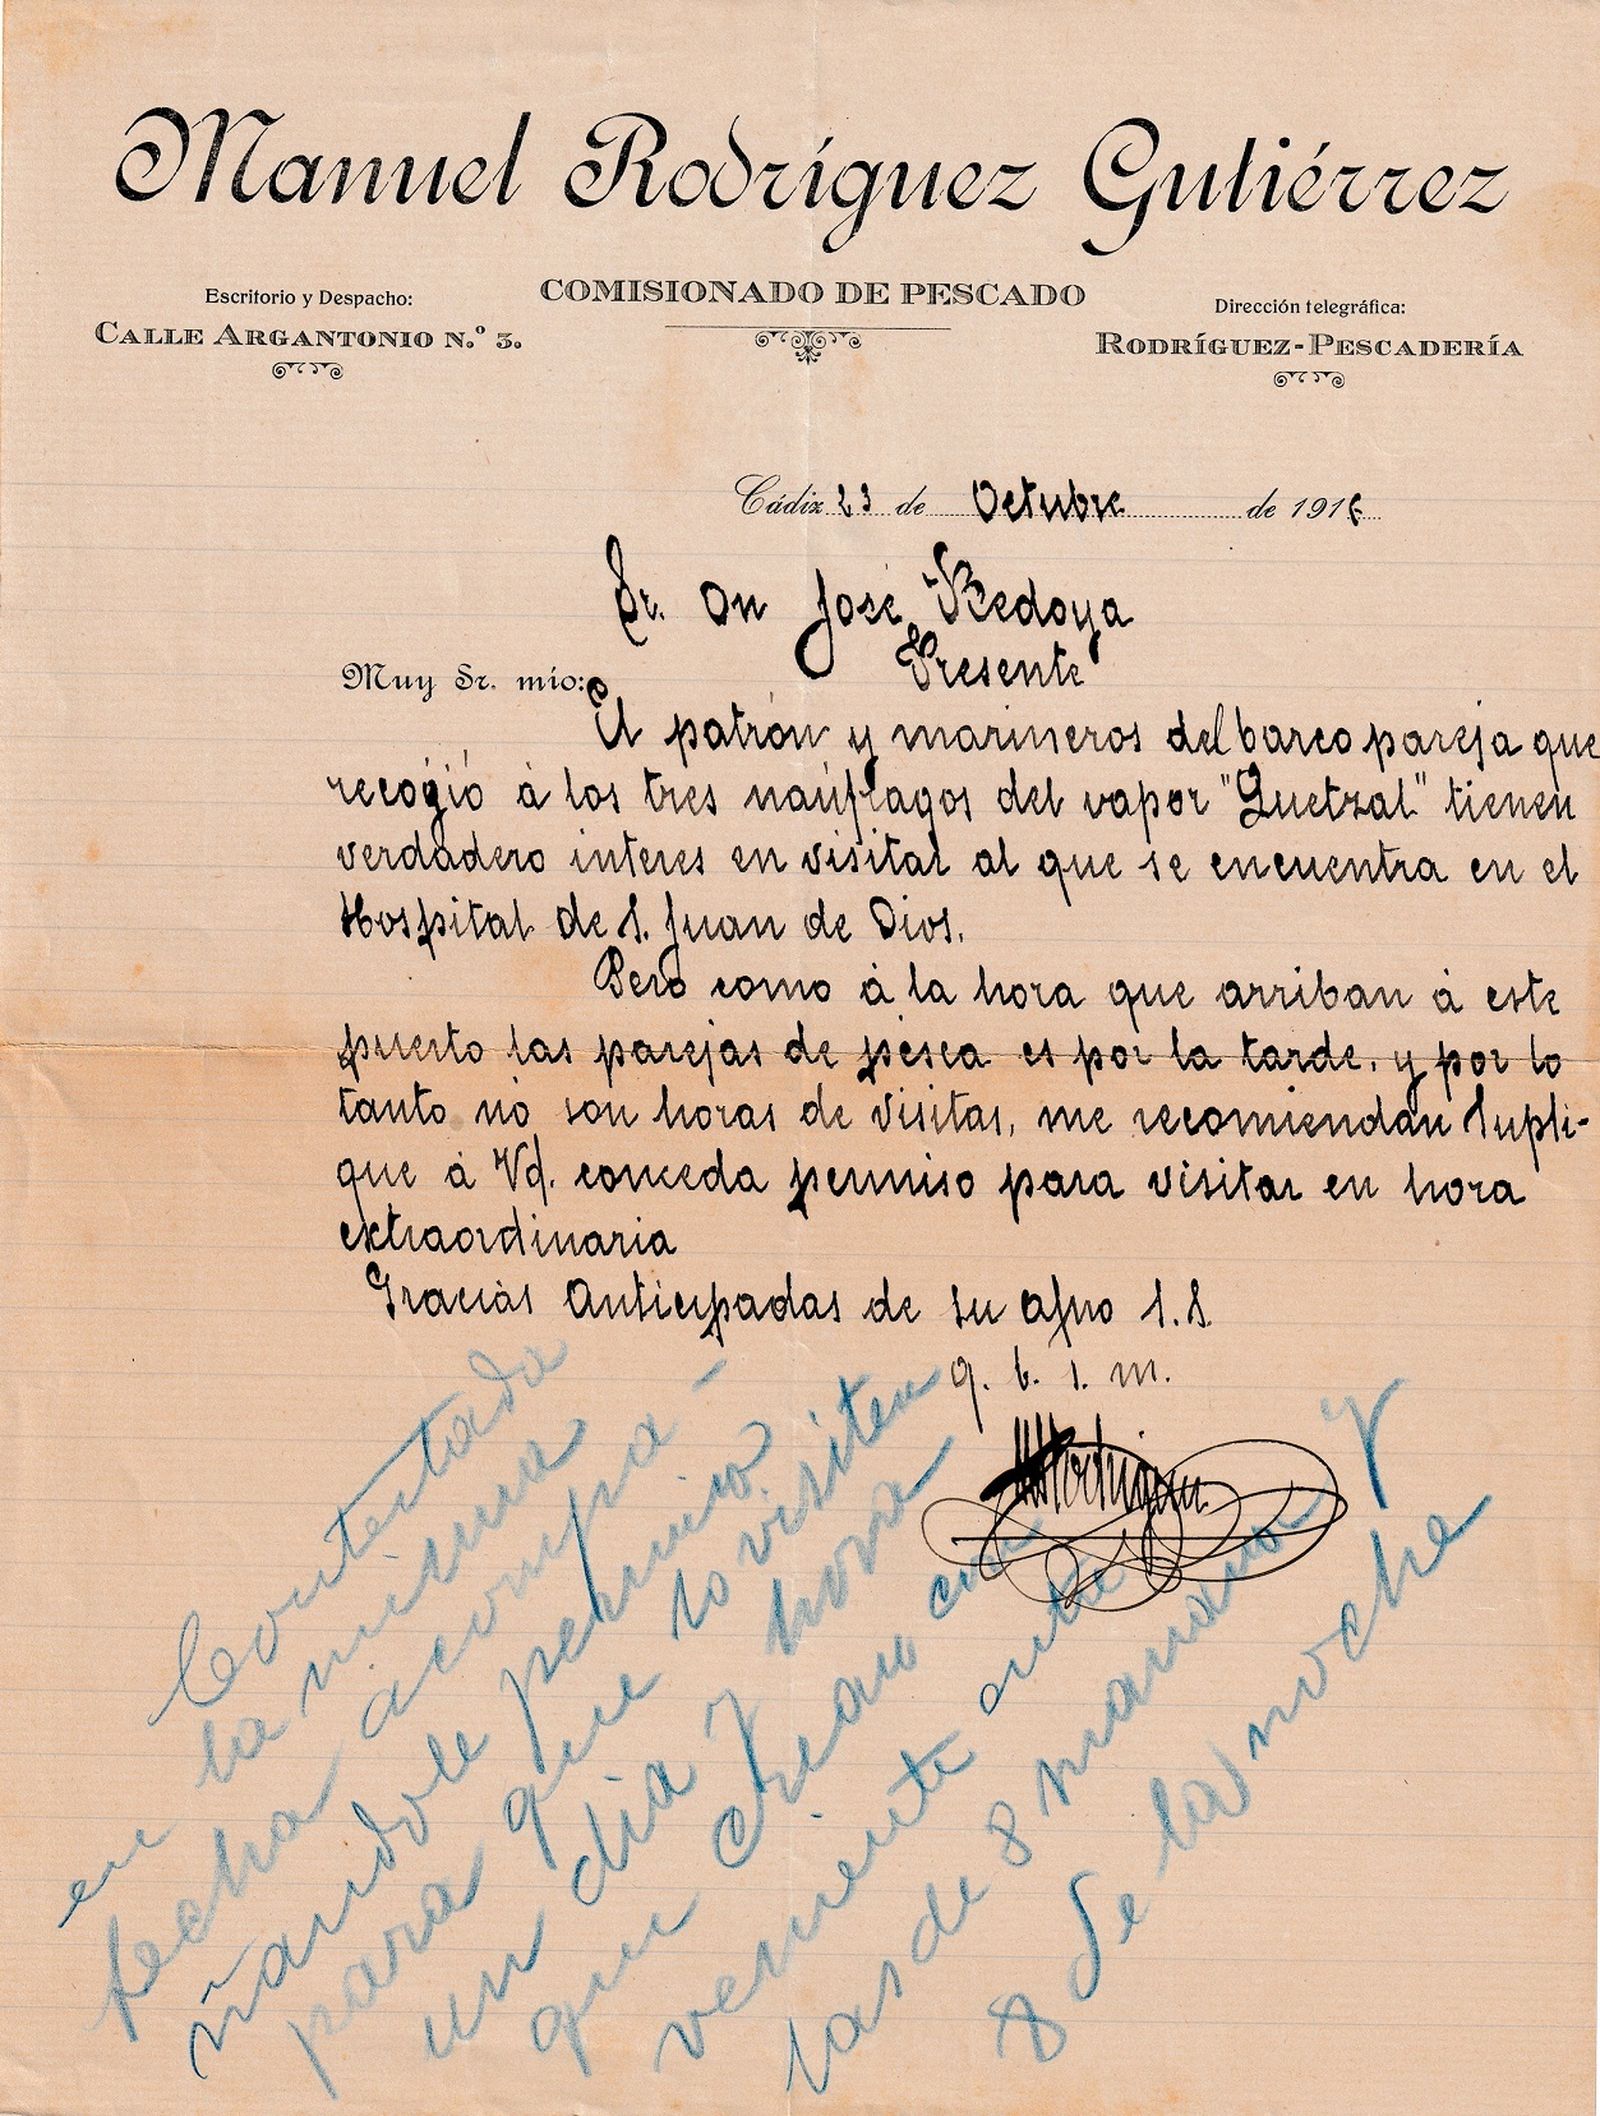 Manuel Rodríguez Gutiérrez
COMISIONADO DE PESCADO
Escritorio y Despacho:
CALLE ARGANTONIO N.º 3.
Dirección telegráfica:
RODRÍGUEZ-PESCADERÍA
Cádiz 23 de Octubre de 1916
Sr. Dn José Bedoya
Presente
Muy Sr. mío:
El patrón y marineros del barco pareja que
recogió á los tres naúflagos del vapor "Quetzal" tienen
verdadero interes en visitar al que se encuentra en el
Hospital de S. Juan de Dios.
Pero como á la hora que arriban á este
puerto las parejas de pesca es por la tarde, y por lo
tanto no son horas de visitas, me recomiendan supli-
que á Vd. conceda permiso para visitar en hora
extraordinaria
Gracias Anticipadas de su afmo S. S.
q. b. s. m.
MRodriguez
Contestada
en la misma
fecha acompa-
ñandole permiso
para que lo visiten
un dia y hora
que crean con
veniente entre
las de 8 mañana y
8 de la noche